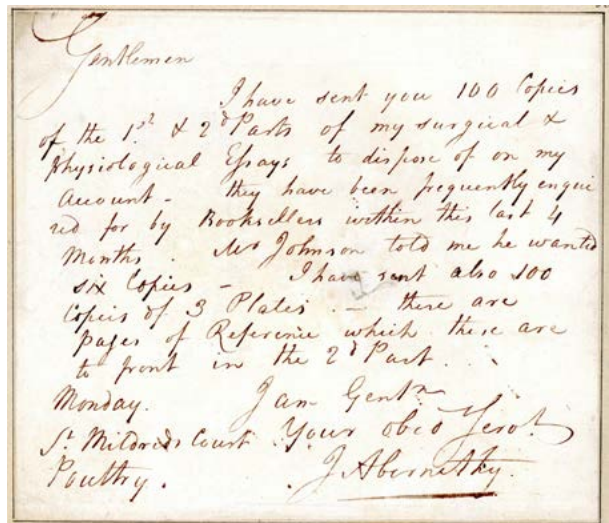 Gentlemen
I have sent you 100 Copies
of the 1st & 2d Parts of my surgical &
Physiological Essays to dispose of on my
Account - they have been frequently enqui
red for by Booksellers within this last 4
Months. Mr Johnson told me he wanted
six Copies - I have sent also 100
Copies of 3 Plates. - there are
pages of Reference which these are
to front in the 2d Part.
Monday. I am Gentn
St Mildreds Court Your obed Servt
Poultry. J Abernethy.